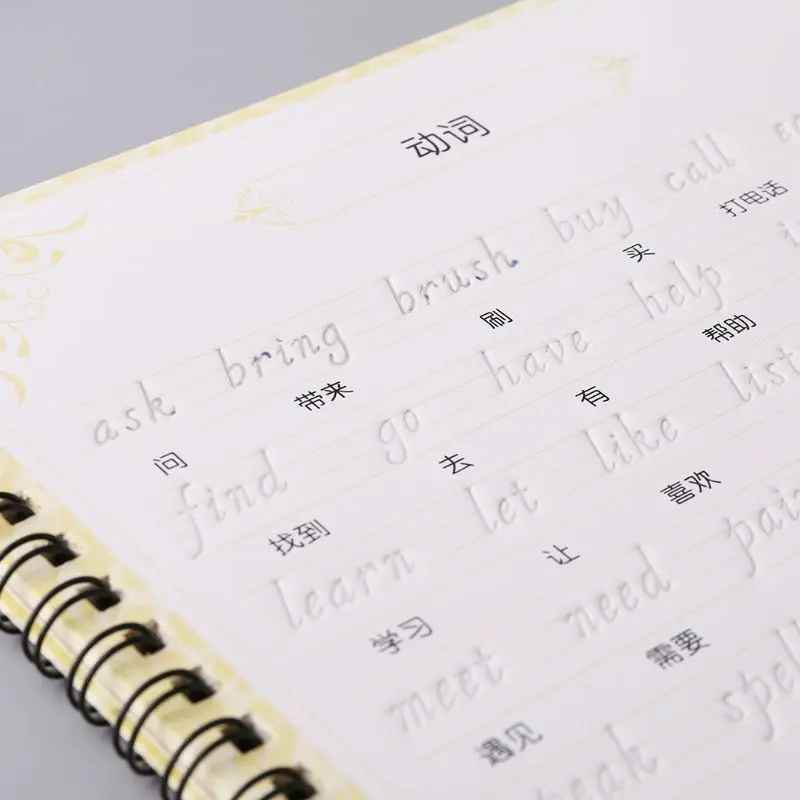 动词
ask bring brush buy call
问 带来 刷 买 打电话
find go have help
找到 去 有 帮助
learn let like
学习 让 喜欢
meet need
遇见 需要
spell